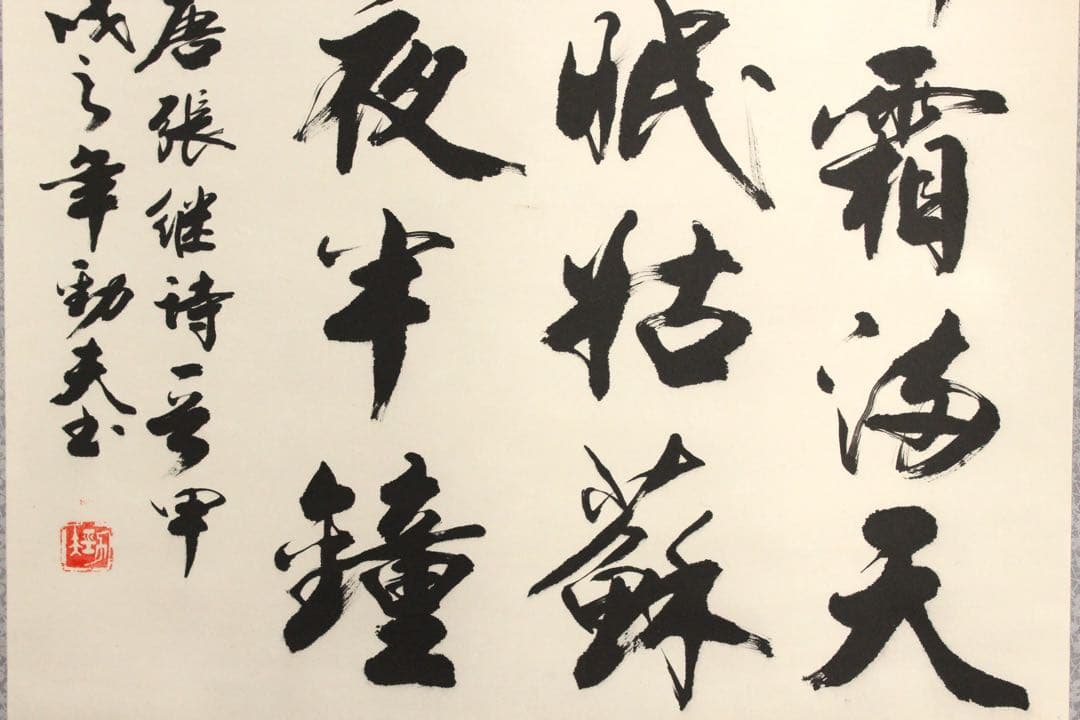 霜满天
眠姑蘇
夜半鐘
唐張继诗一首甲
戌之年勁夫书